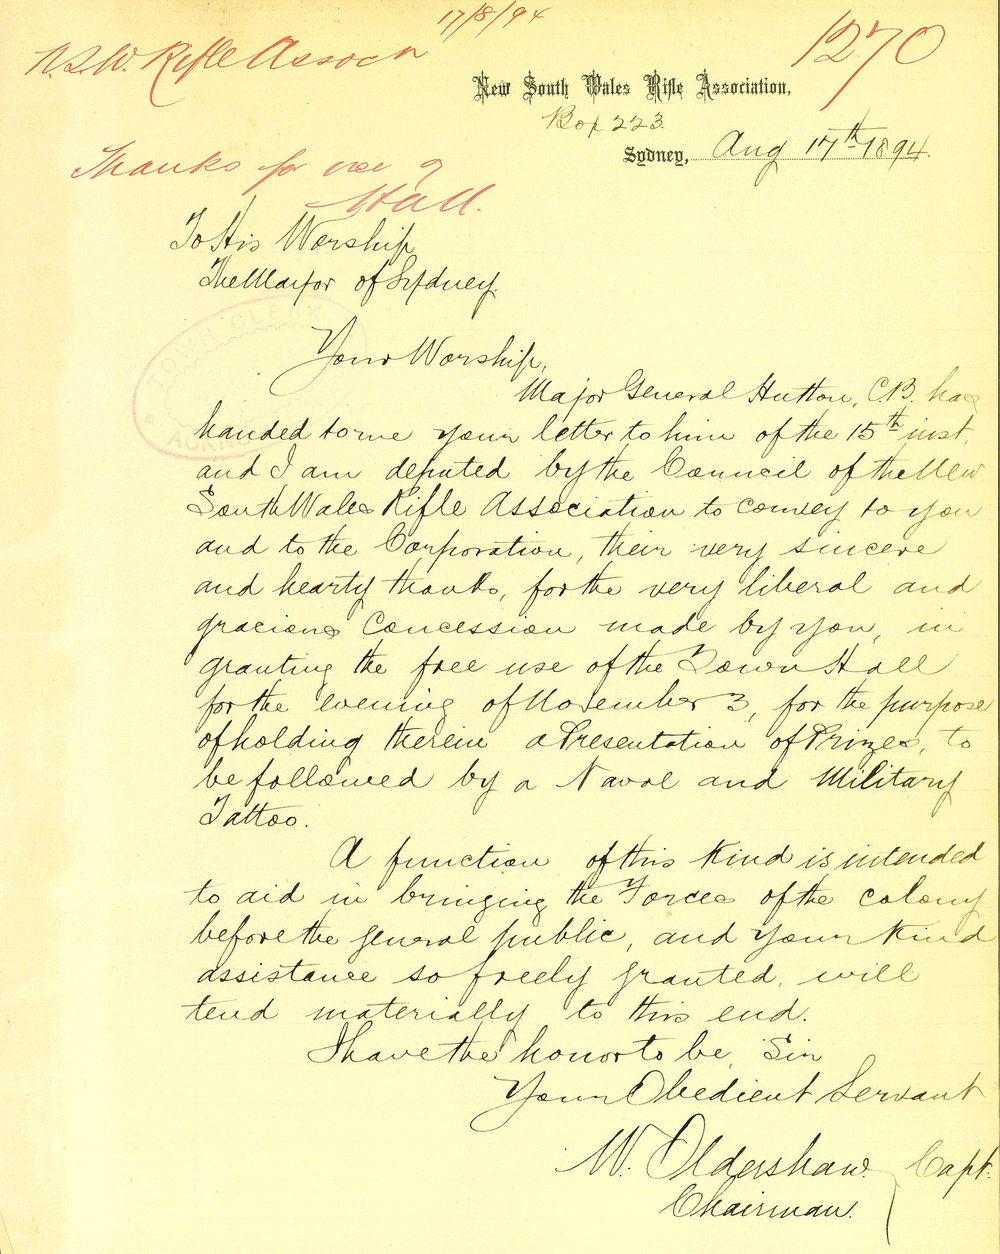 17/8/94
N.S.W. Rifle Assocn
1270
New South Wales Rifle Association,
Box 223.
Sydney, Aug 17th 1894.
Thanks for use of
Hall.
To His Worship
The Mayor of Sydney.
TOWN CLERK
Your Worship,
Major General Hutton, C.B. has
handed to me your letter to him of the 15th inst,
and I am deputed by the Council of the New
South Wales Rifle Association to convey to you
and to the Corporation, their very sincere
and hearty thanks, for the very liberal and
gracious Concession made by you, in
granting the free use of the Town Hall
for the evening of November 3, for the purpose
of holding therein a Presentation of Prizes, to
be followed by a Naval and Military
Tattoo.
A function of this kind is intended
to aid in bringing the Forces of the colony
before the general public, and your kind
assistance so freely granted, will
tend materially to this end.
I have the honor to be, Sir
Your Obedient Servant
W. Oldershaw. Capt.
Chairman.